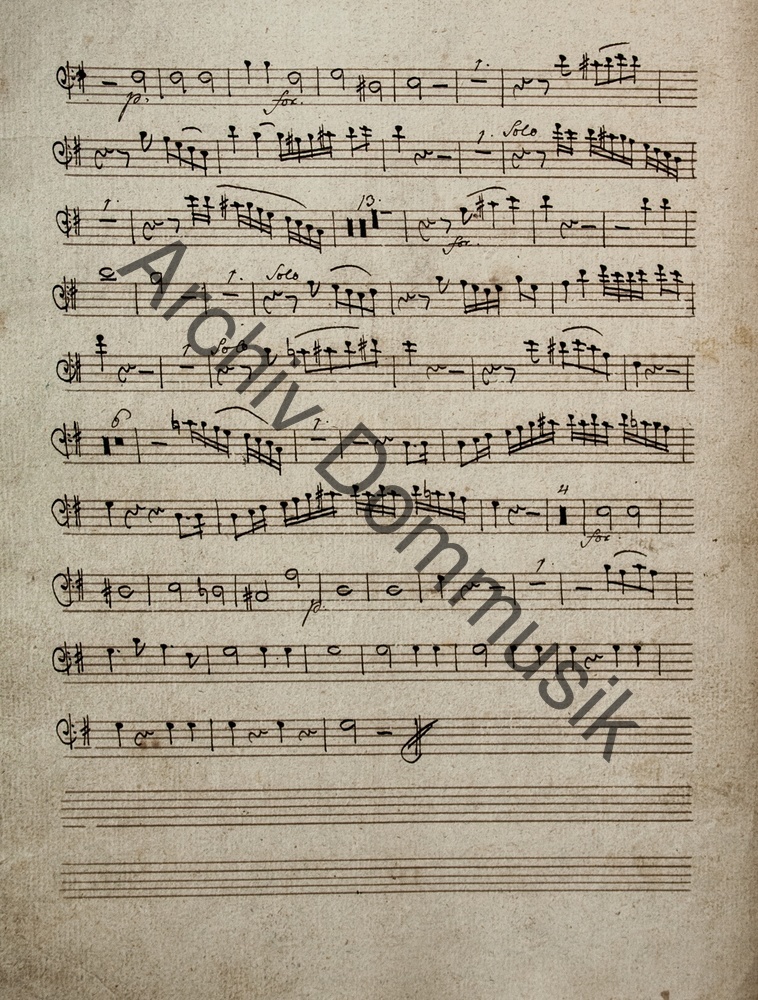 1.
p. for.
1. Solo
1. 13.
for.
1. Solo
1. Solo
6 1.
4
for.
1.
p.
Archiv Dommusik